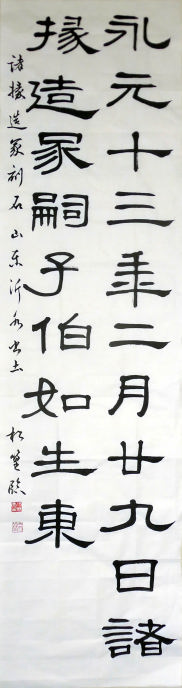 永元十三年二月廿九日諸
掾造冢嗣子伯如生東
諸掾造冢刻石山東沂水出土
臨